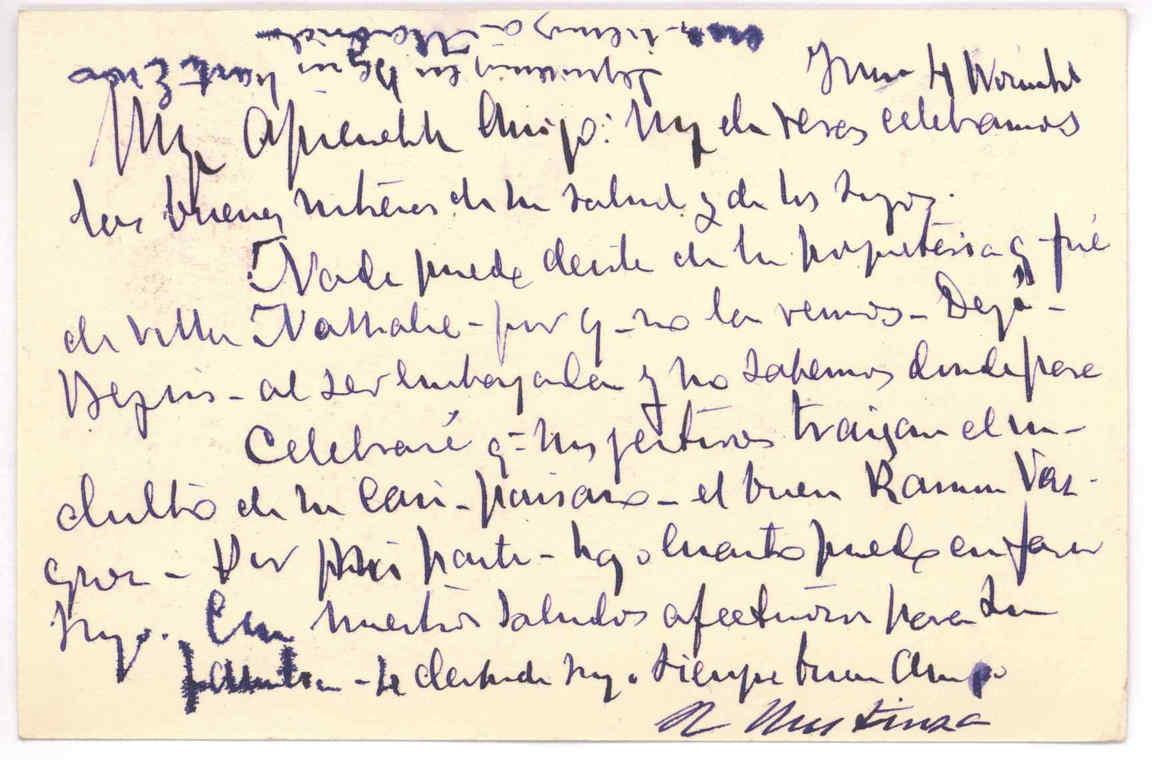 Muy Apreciable Amigo: Muy de veras celebramos
las buenas noticias de su salud y de los suyos.
Nada puedo decirle de la propietaria q. fué
de villa Nathalie - por q. no la vemos - Dejó -
- al ser embargada y no sabemos donde para
Celebraré q. sus gestiones traigan el in-
dulto de su casi - paisano - el buen Ramon Vaz-
quez - Por mi parte - hago cuanto puedo en favor
suyo. Con nuestros saludos afectuosos para su
familia - le suyo siempre buen Amigo